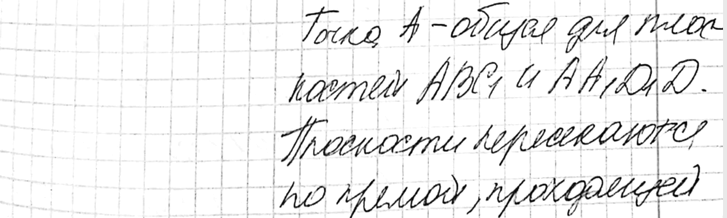 Точка А – общая для плос
костей ABC₁ и AA₁D₁D.
Плоскости пересекаются
по прямой, проходящей